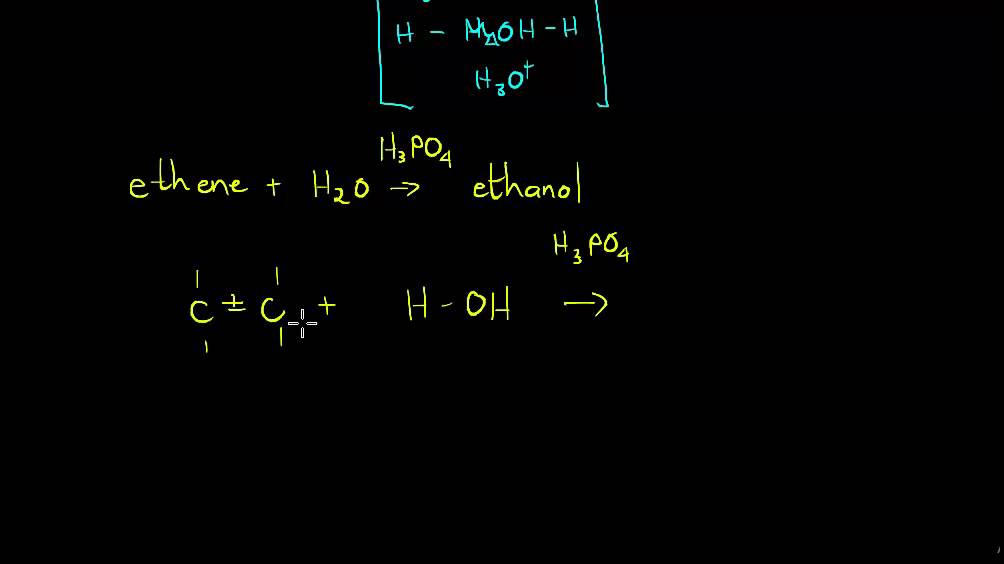 H - OH - H
H₃O⁺
H₃PO₄
ethene + H₂O → ethanol
H₃PO₄
C = C + H - OH →